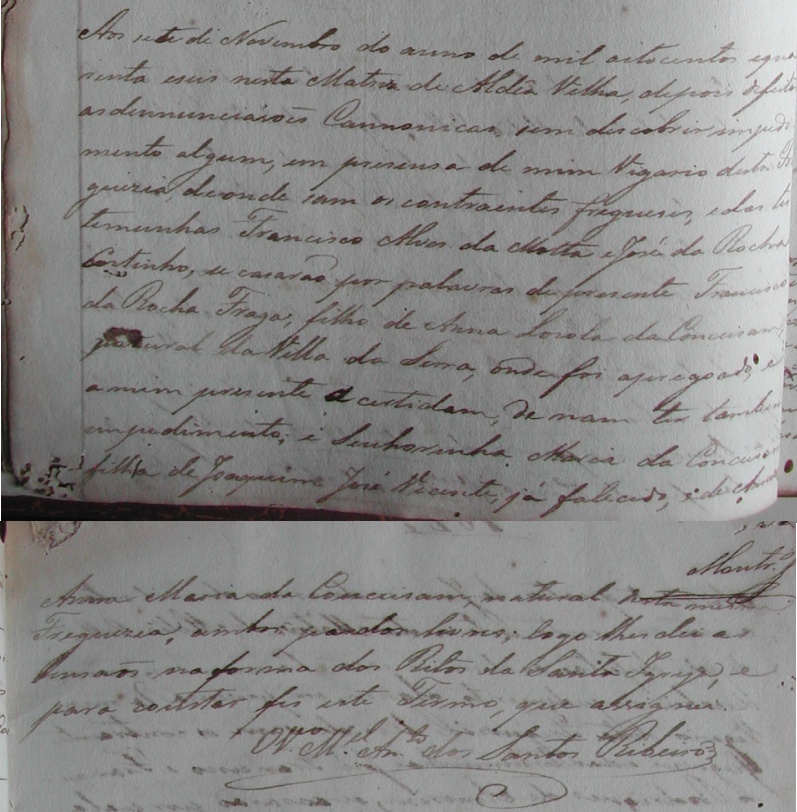 Aos sete de Novembro do anno de mil oitocentos equa
renta eseis nesta Matriz de Aldêa Velha, depois defeito
asdenunciasoēs Cannonicas, sem descobrir impedi
mento algum, em presensa de mim Vigario desta Fr
guezia, deonde sam os contraentes fregueses, edas tes
temunhas Francisco Alves da Motta e José da Rocha
Coitinho, se casaraõ por palavras de presente Francisco
da Rocha Fraga, filho de Anna Loiola da Conceisam,
natural da Villa da Serra, onde foi apregoado, e
amim presente a certidam, de nam ter tambem
impedimento; e Senhorinha Maria da Conceisam
filha de Joaquim José Vicente, já falecido, e de
Anna Maria da Conceisam, natural desta mesma
Freguezia, ambos pardos livres; logo lhes dei as
bensaõs naforma dos Ritos da Santa Igreja, e
para costar fis este Termo, que assignei.
O Vgro Mel Anto dos Santos Ribeiro